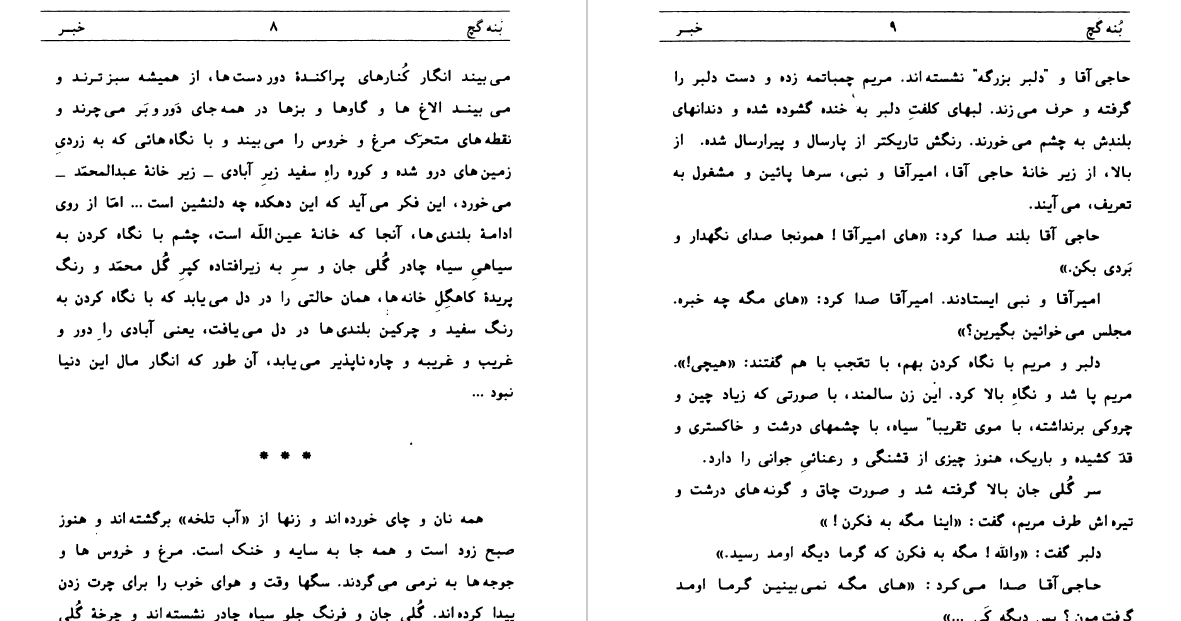 بُنه گچ ۸ خبـر
می‌بیند انگار کُنارهای پراکندهٔ دوردست‌ها، از همیشه سبزترند و
می‌بیند الاغ ها و گاوها و بزها در همه‌جای دَور و بَر می‌چرند و
نقطه‌های متحرّک مرغ و خروس را می‌بیند و با نگاه‌هائی که به زردیِ
زمین‌های درو شده و کوره راهِ سفید زیرِ آبادی _ زیر خانهٔ عبدالمحمّد _
می‌خورد، این فکر می‌آید که این دهکده چه دلنشین است ... امّا از روی
ادامهٔ بلندی‌ها، آنجا که خانهٔ عین‌اللّه است، چشم با نگاه کردن به
سیاهیِ سیاه چادر گُلی جان و سرِ به زیرافتاده کپرِ گُل محمّد و رنگ
پریدهٔ کاهگِلِ خانه‌ها، همان حالتی را در دل می‌یابد که با نگاه کردن به
رنگ سفید و چرکین بلندی‌ها در دل می‌یافت، یعنی آبادی را دور و
غریب و غریبه و چاره‌ناپذیر می‌یابد، آن طور که انگار مال این دنیا
نبود ...
* * *
همه نان و چای خورده‌اند و زنها از «آب تلخه» برگشته‌اند و هنوز
صبح زود است و همه جا به سایه و خنک است. مرغ و خروس ها و
جوجه‌ها به نرمی می‌گردند. سگها وقت و هوای خوب را برای چرت زدن
پیدا کرده‌اند. گُلی جان و فرنگ جلو سیاه چادر نشسته‌اند و چرخهٔ گُلی
بُنه گچ ۹ خبـر
حاجی‌آقا و "دلبر بزرگه" نشسته‌اند. مریم چمباتمه زده و دست دلبر را
گرفته و حرف می‌زند. لبهای کلفتِ دلبر به خنده گشوده شده و دندانهای
بلندش به چشم می‌خورند. رنگش تاریکتر از پارسال و پیرارسال شده. از
بالا، از زیر خانهٔ حاجی آقا، امیرآقا و نبی، سرها پائین و مشغول به
تعریف، می‌آیند.
حاجی آقا بلند صدا کرد: «های امیرآقا! همونجا صدای نگهدار و
بَردی بکن.»
امیرآقا و نبی ایستادند. امیرآقا صدا کرد: «های مگه چه خبره.
مجلس می‌خوائین بگیرین؟»
دلبر و مریم با نگاه کردن بهم، با تعّجب با هم گفتند: «هیچی!».
مریم پا شد و نگاهِ بالا کرد. این زن سالمند، با صورتی که زیاد چین و
چروکی برنداشته، با موی تقریبا" سیاه، با چشمهای درشت و خاکستری و
قدّ کشیده و باریک، هنوز چیزی از قشنگی و رعنائیِ جوانی را دارد.
سر گُلی جان بالا گرفته شد و صورت چاق و گونه‌های درشت و
تیره‌اش طرف مریم، گفت: «اینا مگه به فکرن!»
دلبر گفت: «والله! مگه به فکرن که گرما دیگه اومد رسید.»
حاجی‌آقا صدا می‌کرد: «های مگه نمی‌بینین گرما اومد
گرفت‌مون؟ پس دیگه کَی ...»